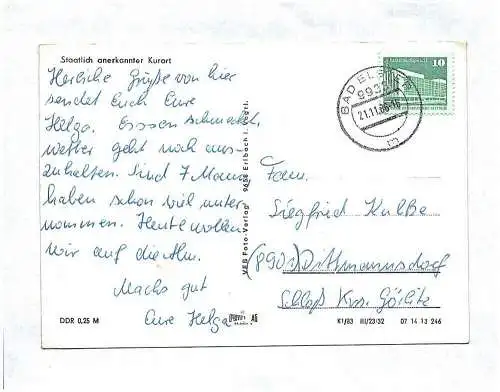 Staatlich anerkannter Kurort
Herzliche Grüße von hier
sendet Euch Eure
Helga. Essen schmeckt,
wetter geht noch aus-
zuhalten. Sind 7 Mann
haben schon viel unter
nommen. Heute wollen
wir auf die Alm.
Machs gut
Eure Helga
DDR 0,25 M
VEB Foto-Verlag 9654 Erlbach i. Vogtl.
10
BAD ELSTER
9930
21.11.86-16
m
Fam.
Siegfried Kulße
(8901) Dittmannsdorf
Schloß Krs. Görlitz
K1/83 III/23/32 07 14 13 246